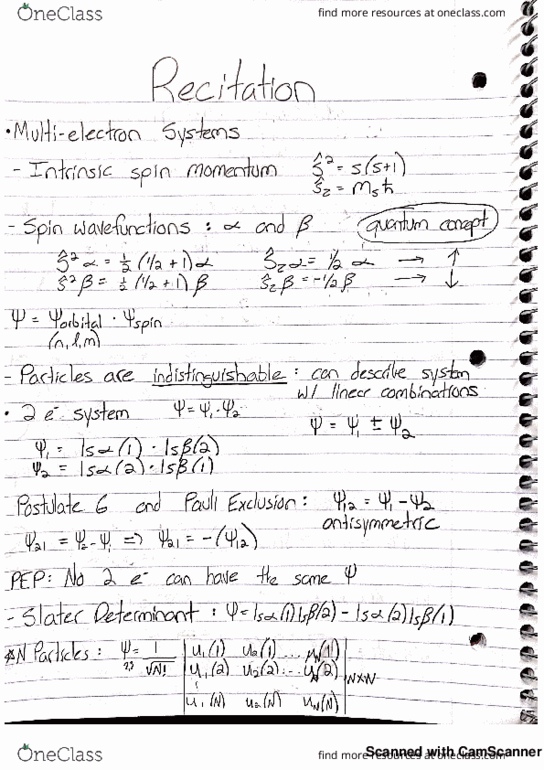 OneClass
find more resources at oneclass.com
Recitation
• Multi-electron Systems
- Intrinsic spin momentum Ŝ² = s(s+1)
Ŝz = msħ
- Spin wavefunctions : α and β quantum concept
Ŝ²α = ½(1/2 + 1)α Ŝzα = 1/2 α → ↑
Ŝ²β = ½(1/2 + 1)β Ŝzβ = -1/2 β → ↓
Ψ = Ψorbital · Ψspin
(n, l, m)
- Particles are indistinguishable : can describe system
w/ linear combinations
• 2 e⁻ system Ψ = Ψ₁·Ψ₂
Ψ = Ψ₁ ± Ψ₂
Ψ₁ = 1sα(1) · 1sβ(2)
Ψ₂ = 1sα(2) · 1sβ(1)
Postulate 6 and Pauli Exclusion : Ψ₁₂ = Ψ₁ - Ψ₂
antisymmetric
Ψ₂₁ = Ψ₂ - Ψ₁ ⇒ Ψ₂₁ = -(Ψ₁₂)
PEP: No 2 e⁻ can have the same Ψ
- Slater Determinant : Ψ = 1sα(1)1sβ(2) - 1sα(2)1sβ(1)
N Particles : Ψ = 1/√N! | u₁(1) u₂(1) ... uN(1) |
| u₁(2) u₂(2) ... uN(2) | N×N
| u₁(N) u₂(N) uN(N) |
OneClass
find more resources at oneclass.com
Scanned with CamScanner